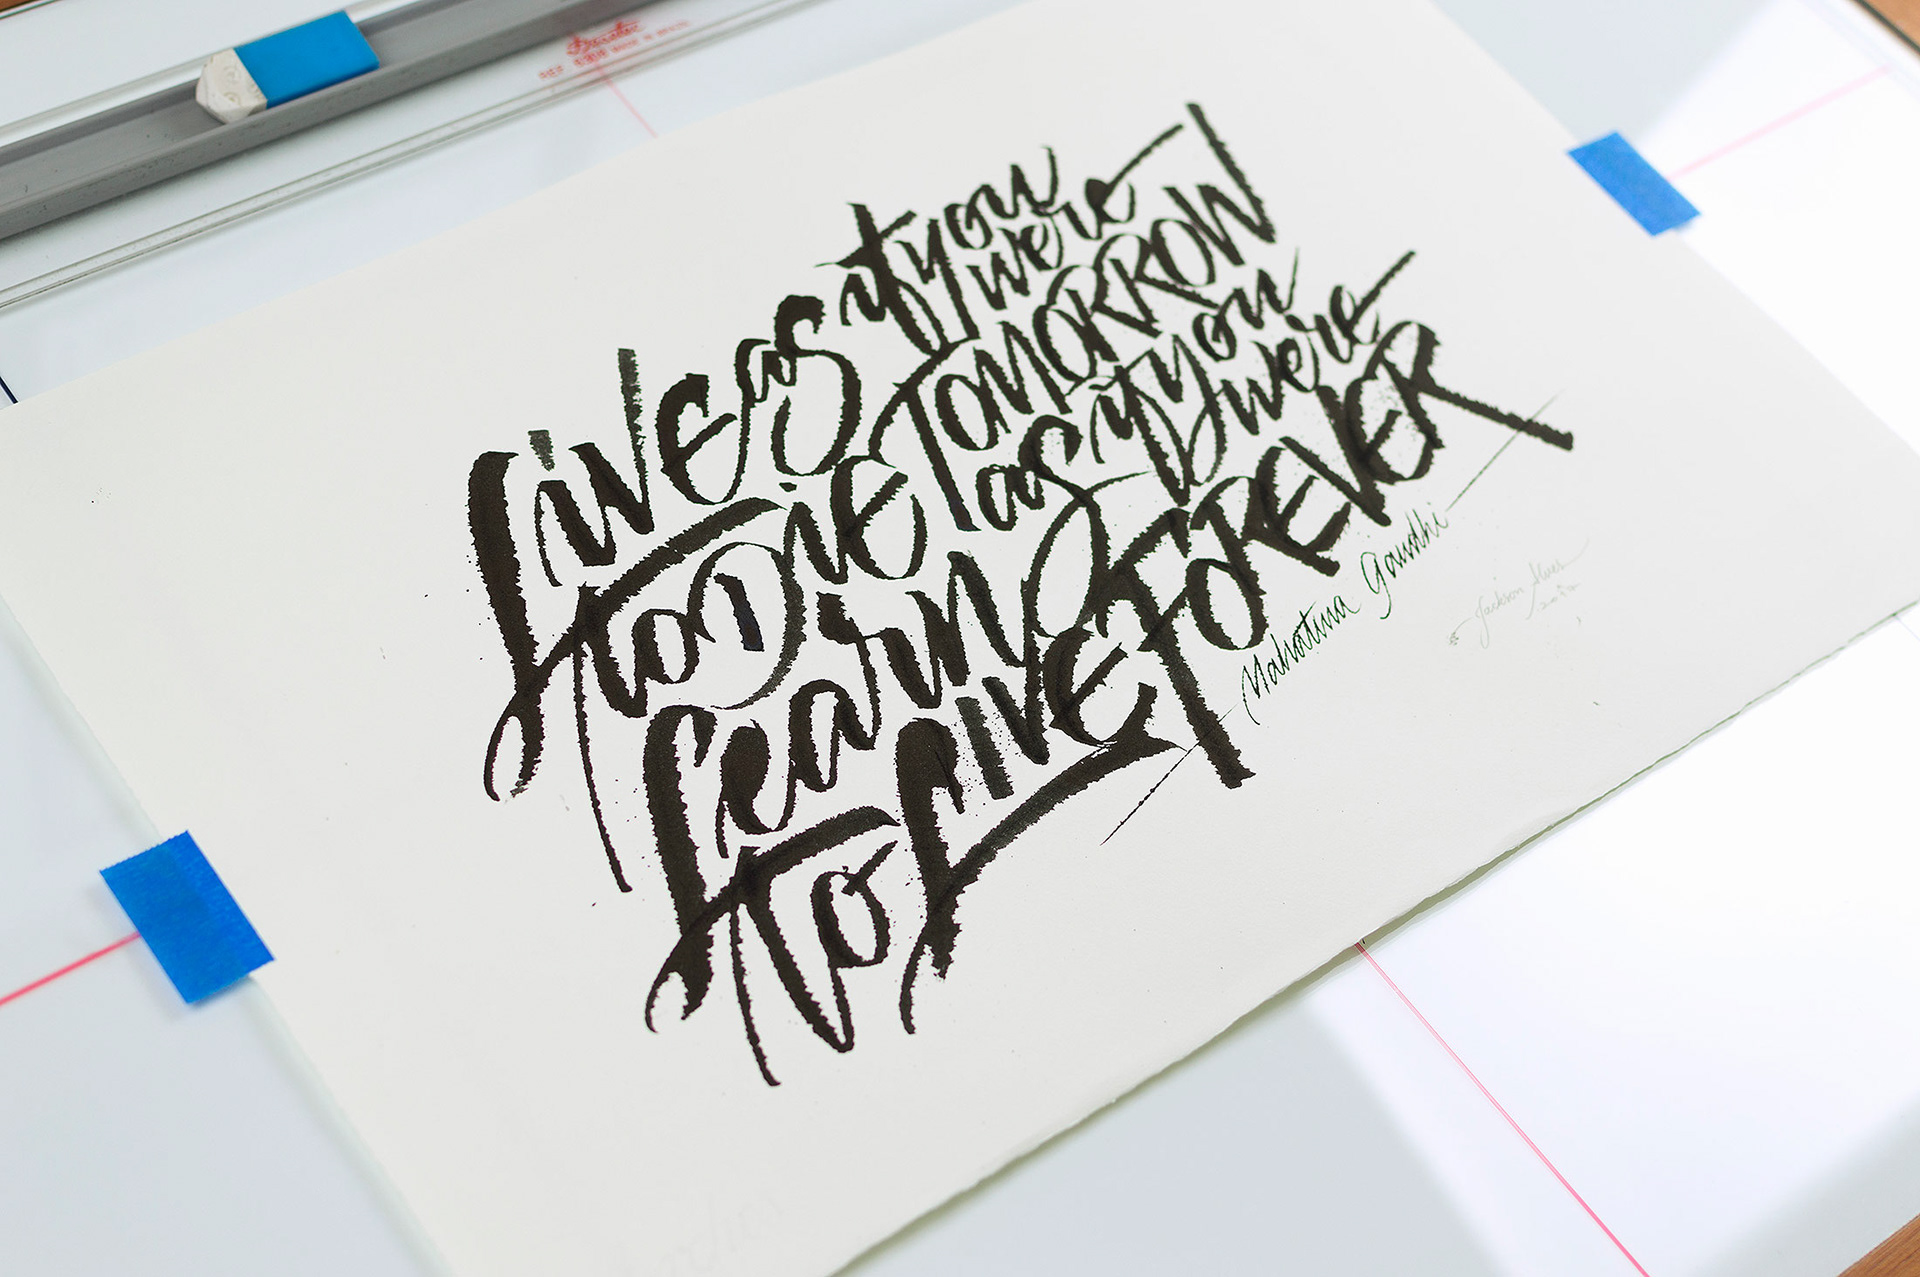 Live as if you were
to Die TOMORROW
learn as if you were
TO LIVE FOREVER
Mahatma Gandhi
Jackson Alves